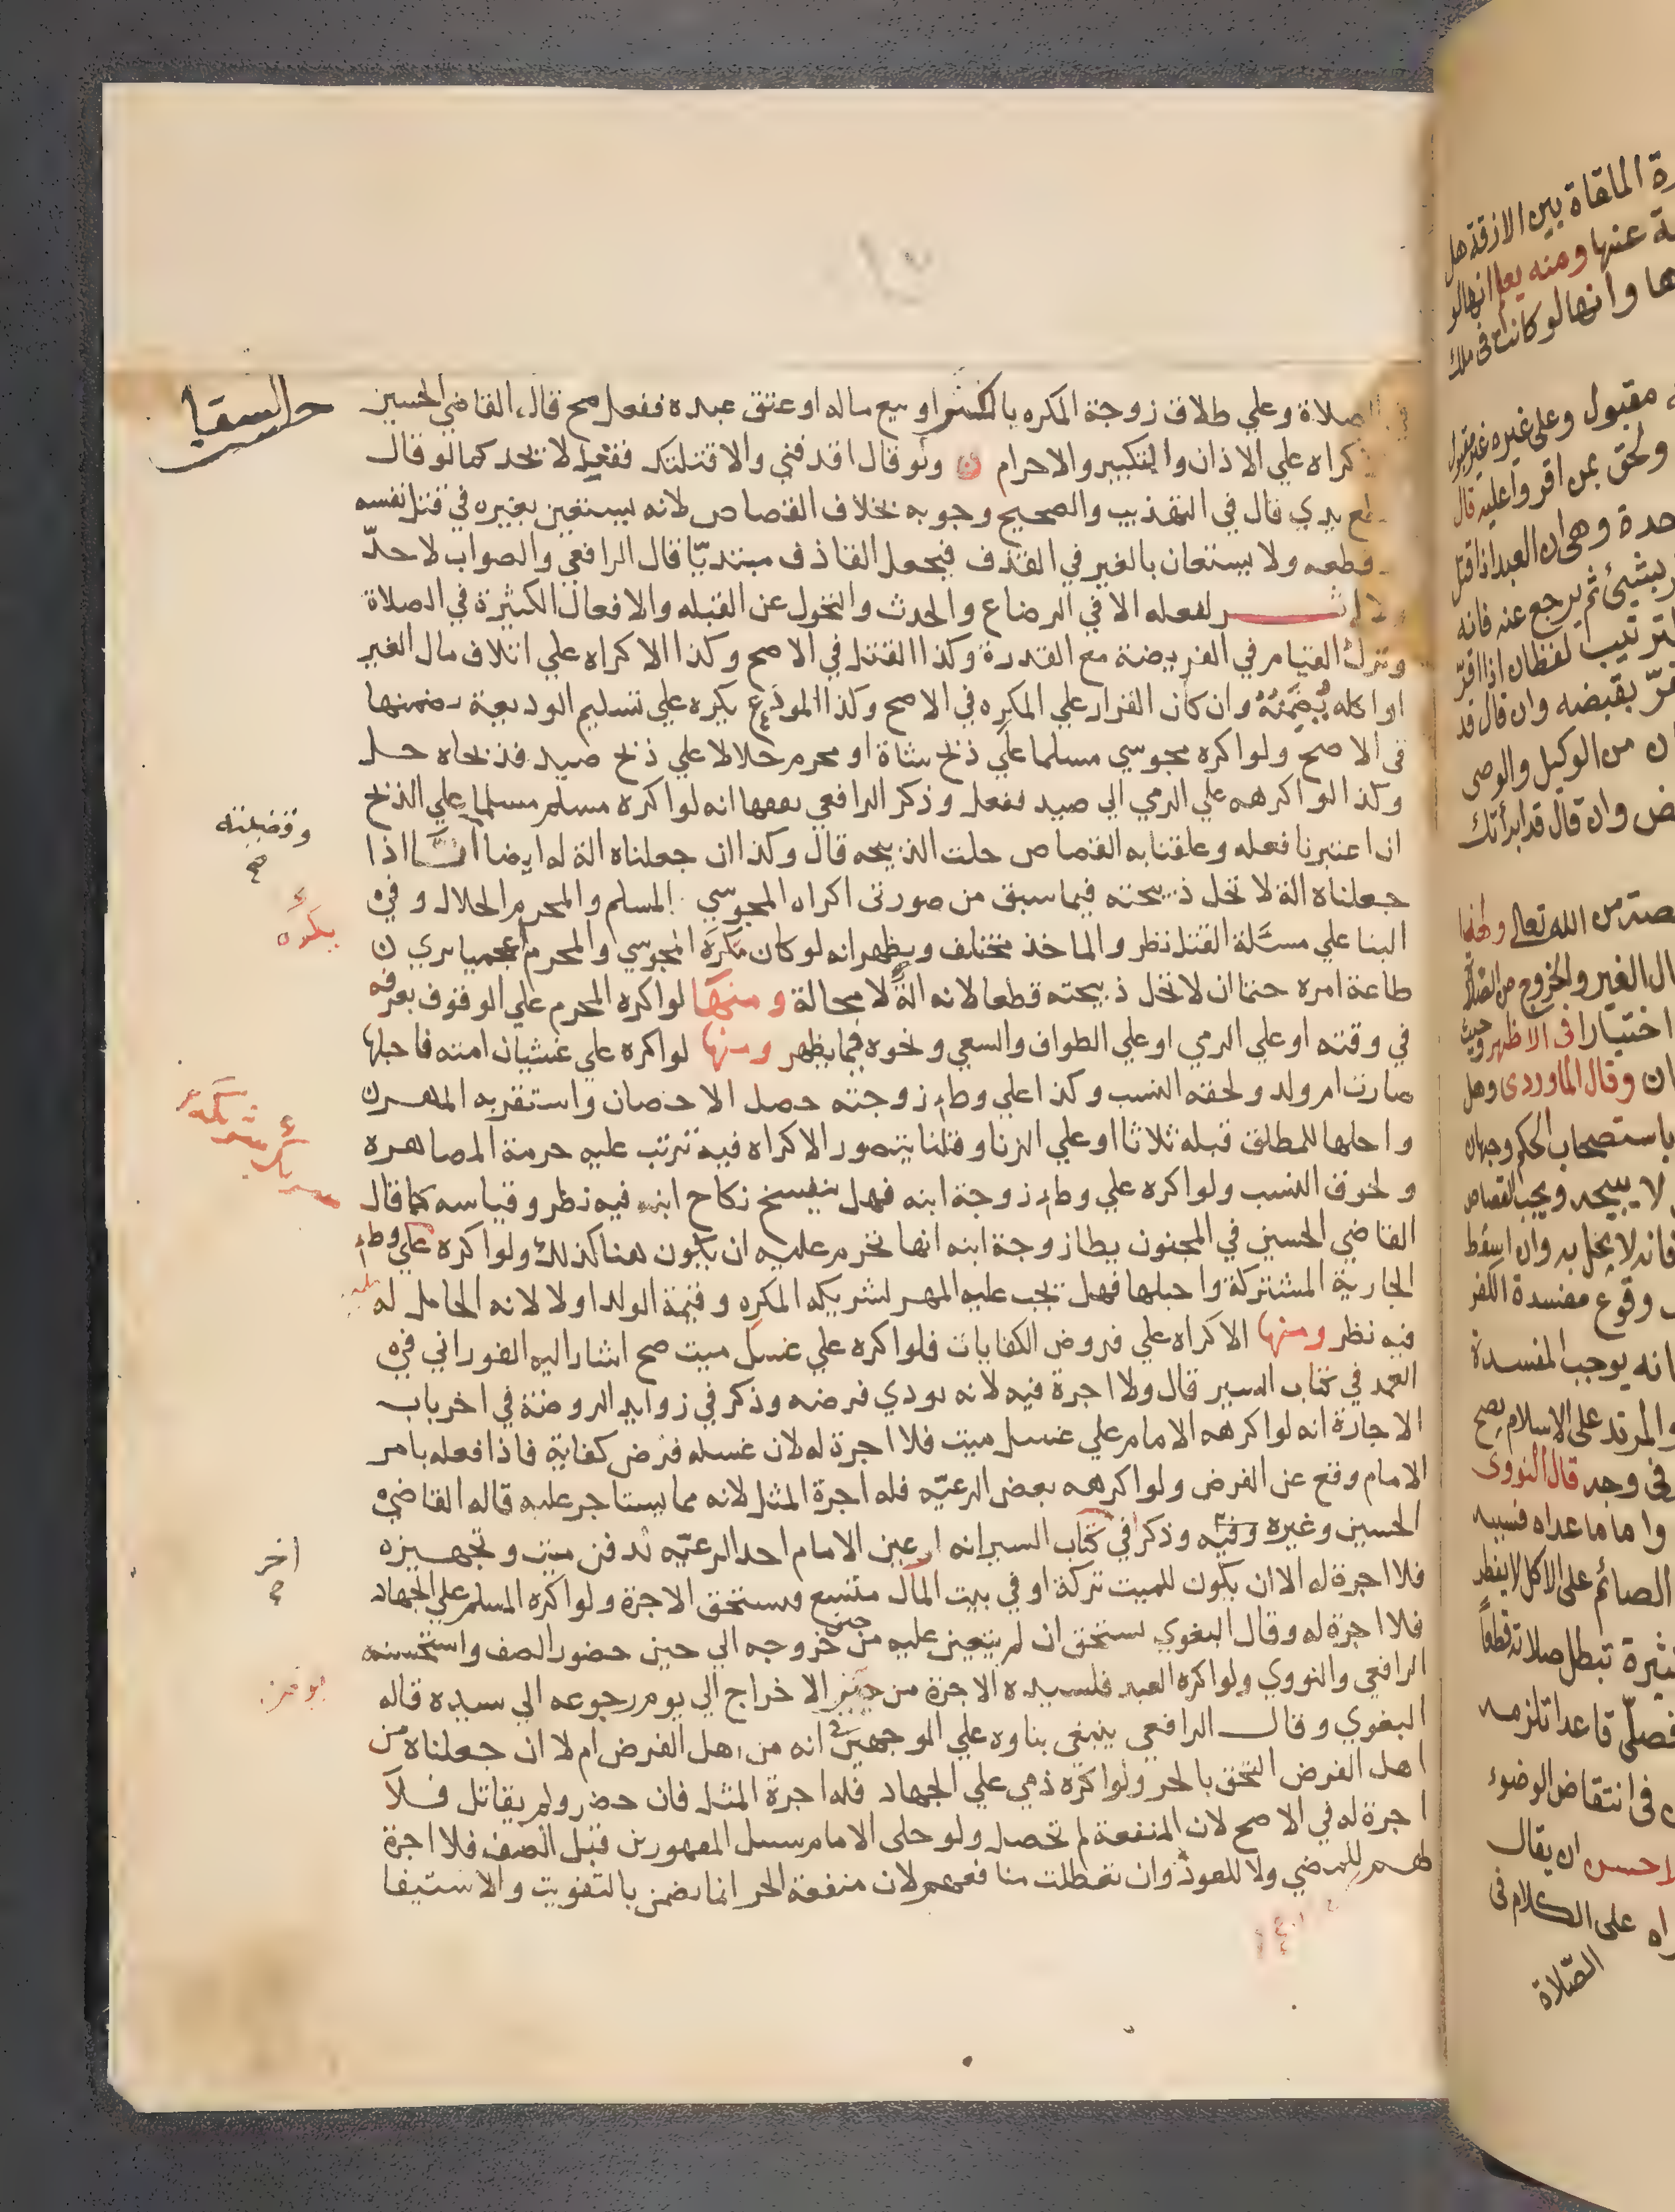 الصلاة وعلي طلاق زوجة المكره بالكسر او بيع ماله او عتق عبده ففعل صح قال القاضي الحسين
كراه علي الاذان والتكبير والاحرام ن ولو قال اقذفني والا قتلتك فقذفه لا يحد كما لو قال
طع يدي قال في التهذيب والصحيح وجوبه بخلاف القصاص لانه يستعين بغيره في قتل نفسه
وقطعه ولا يستعان بالغير في القذف فيجعل القاذف مبتديّا قال الرافعي والصواب لا حدّ
ولا اثر لفعله الا في الرضاع والحدث والتحول عن القبله والافعال الكثيرة في الصلاة
وترك القيام في الفريضة مع القدرة وكذا القتل في الاصح وكذا الاكراه علي اتلاف مال الغير
او اكله يُضَمِّنُهُ وان كان القرار علي المكرِه في الاصح وكذا المودَع يكره علي تسليم الوديعة يضمنها
في الاصح ولو اكره مجوسي مسلما علي ذبح شاة او محرم حلالا علي ذبح صيد فذبحاه حل
وكذا لو اكرهه علي الرمي الي صيد ففعل وذكر الرافعي تفقها انه لو اكره مسلم مسلما علي الذبح
ان اعتبرنا فعله وعلقنا به القصاص حلت الذبيحه قال وكذا ان جعلناه الة له ايضا اما اذا
جعلناه الة لا تحل ذبيحته فيما سبق من صورتي اكراه المجوسي المسلم والمحرم الحلال وفي
البنا علي مسئلة القتل نظر والماخذ مختلف ويظهر انه لو كان مكرَه المجوسي والمحرم اعجميا يري ن
طاعة امره حتما ان لا تحل ذبيحته قطعا لانه الةً لا محالة ومنها لو اكره المحرم علي الوقوف بعرفه
في وقته او علي الرمي او علي الطواف والسعي ونحوه فيما يظهر ومنها لو اكره علي غشيان امته فاحبلها
صارت ام ولد ولحقه النسب وكذا علي وطء زوجته حصل الاحصان واستقر به المهر
واحلها للمطلق قبله ثلاثا او علي الزنا وقلنا يتصور الاكراه فيه ترتب عليه حرمة المصاهرة
ولحوق النسب ولو اكره علي وطء زوجة ابنه فهل ينفسخ نكاح ابنه فيه نظر وقياسه كما قال
القاضي الحسين في المجنون يطا زوجة ابنه انها تحرم عليه ان يكون هنا كذلك ولو اكره علي وطء
الجارية المشتركة واحبلها فهل تجب عليه المهر لشريكه المكرِه وقيمة الولد اولا لانه الحامل له
فيه نظر ومنها الاكراه علي فروض الكفايات فلو اكره علي غسل ميت صح اشار اليه الفوراني في
العمد في كتاب السير قال ولا اجرة فيه لانه يودي فرضه وذكر في زوايد الروضة في اخر باب
الاجارة انه لو اكرهه الامام علي غسل ميت فلا اجرة له لان غسله فرض كفاية فاذا فعله بامر
الامام وقع عن الفرض ولو اكرهه بعض الرعيّه فله اجرة المثل لانه مما يستاجر عليه قاله القاضي
الحسين وغيره وفيه وذكر في كتاب السير انه ان عين الامام احد الرعيّه لدفن ميت وتجهيزه
فلا اجرة له الا ان يكون للميت تركة او في بيت المال متسع فيستحق الاجرة ولو اكره المسلم علي الجهاد
فلا اجرة له وقال البغوي يستحق ان لم يتعين عليه من حين خروجه الي حين حضور الصف واستحسنه
الرافعي والنووي ولو اكره العبد فلسيده الاجرة من حين الاخراج الي يوم رجوعه الي سيده قاله
البغوي وقال الرافعي ينبغي بناوه علي الوجهين في انه من اهل الفرض ام لا ان جعلناه من
اهل الفرض التحق بالحر ولو اكره ذمي علي الجهاد فله اجرة المثل فان حضر ولم يقاتل فلا
اجرة له في الاصح لان المنفعة لم تحصل ولو خلى الامام سبيل المقهورين قبل الصف فلا اجرة
لهم للمضي ولا للعود وان تعطلت منافعهم لان منفعة الحر انما تضمن بالتفويت والاستيفا
وقضيته
صح
يكره
اخر